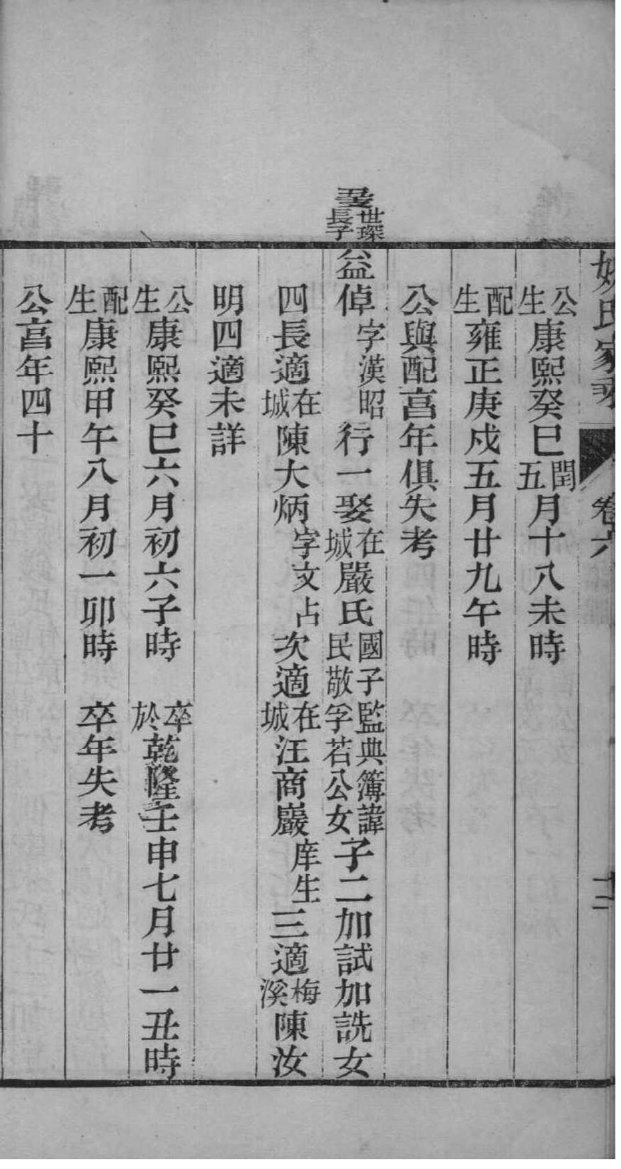 姚氏家乘 卷六 十二
公生康熙癸巳閏五月十八未時
配生雍正庚戍五月廿九午時
公與配亯年俱失考
世璨長子
益倬字漢昭行一娶在城嚴氏國子監典簿諱民敬孚若公女子二加試加詵女
四長適在城陳大炳字文占次適在城汪商巖庠生三適梅溪陳汝
明四適未詳
公生康熙癸巳六月初六子時 卒於乾隆壬申七月廿一丑時
配生康熙甲午八月初一卯時 卒年失考
公亯年四十